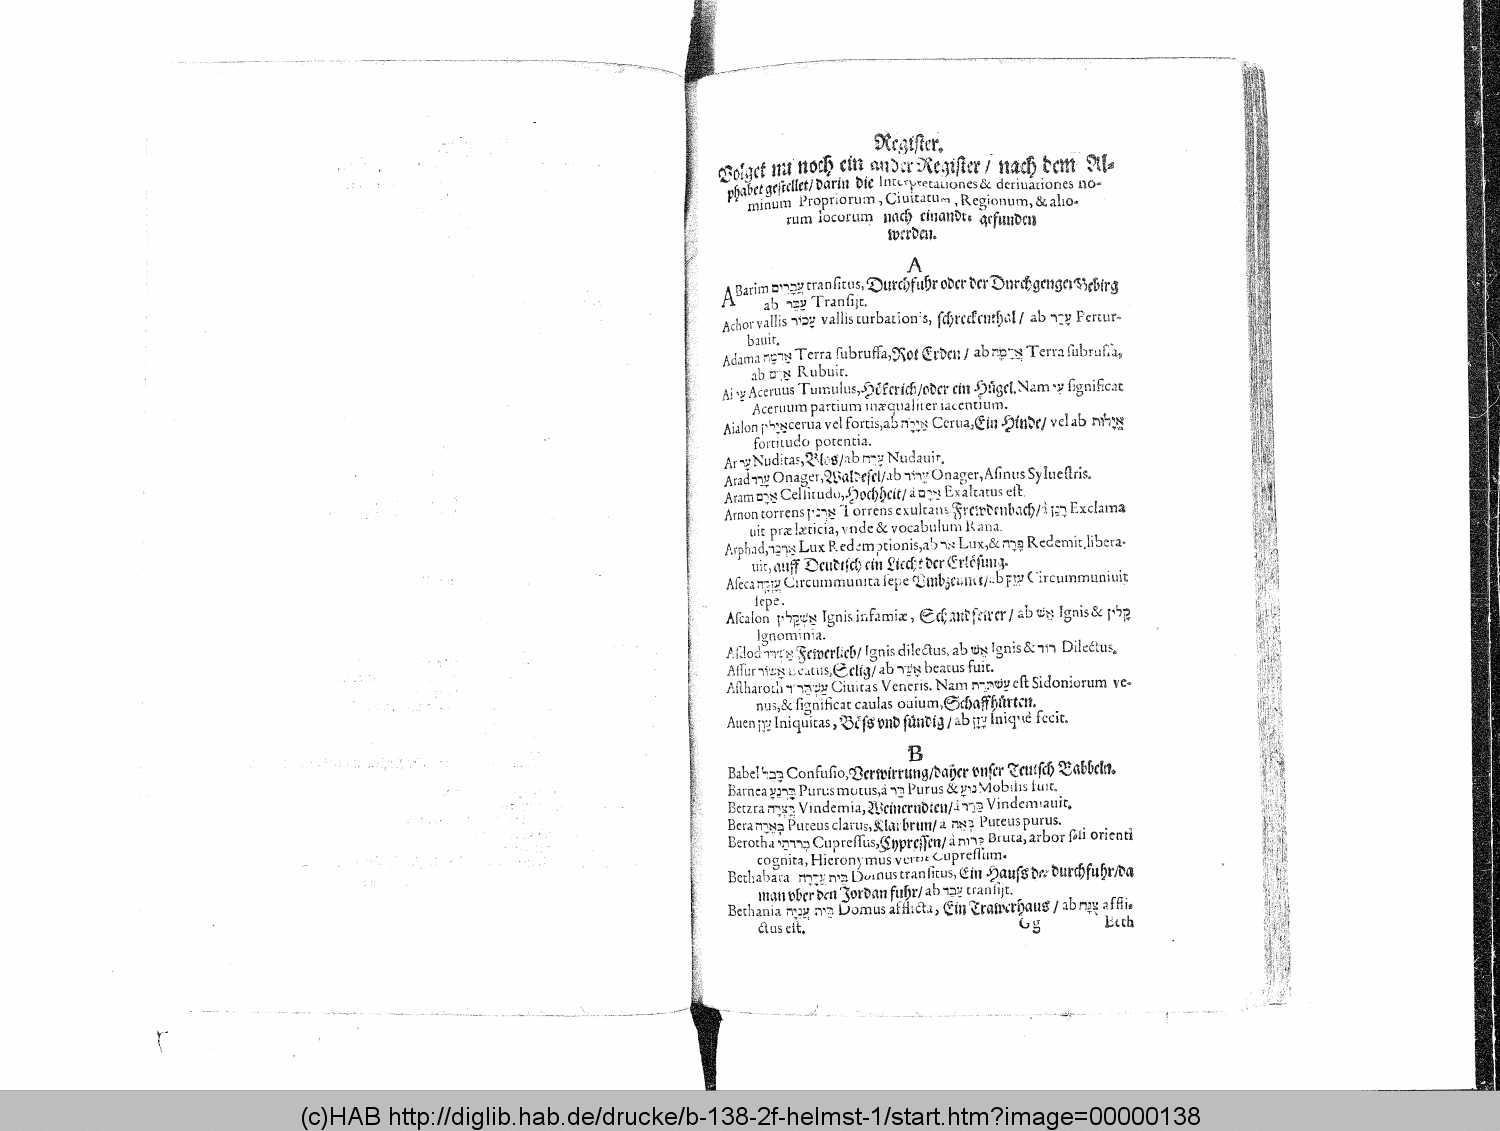 Register.
Volget nu noch ein ander Register / nach dem Al-
phabet gestellet / darin die Interpretationes & deriuationes no-
minum Propriorum, Ciuitatum, Regionum, & alio-
rum locorum nach einander gefunden
werden.
A
ABarim עֲבָרִים transitus, Durchfuhr oder der Durchgenger Gebirg
ab עָבַר Transijt.
Achor vallis עָכוֹר vallis turbationis, schreckenthal / ab עָכַר Pertur-
bauit.
Adama אַדְמָה Terra subruffa, Rot Erden / ab אֲדָמָה Terra subruffa,
ab אָדַם Rubuit.
Ai עַי Aceruus Tumulus, Hôkerich / oder ein Hûgel. Nam עִי significat
Aceruum partium inæqualiter iacentium.
Aialon אַיָלוֹן cerua vel fortis, ab אַיָלָה Cerua, Ein Hinde / vel ab אֱיָלוּת
fortitudo potentia.
Ar עָר Nuditas, Blos / ab עָרָה Nudauit.
Arad עֲרָד Onager, Waldesel / ab עָרוֹד Onager, Asinus Syluestris.
Aram אֲרָם Celsitudo, Hochheit / à אָרַם Exaltatus est.
Arnon torrens אַרְנוֹן Torrens exultans Frewdenbach / à רָנַן Exclama
uit præ læticia, vnde & vocabulum Rana.
Arphad, אַרְפַּד Lux Redemptionis, ab אוֹר Lux, & פָּדָה Redemit, libera-
uit, auff Deudtsch ein Liecht der Erlôsung.
Aseca עֲזֵקָה Circummunita sepe Vmbzeunet / ab עָזַק Circummuniuit
sepe.
Ascalon אַשְׁקְלוֹן Ignis infamiæ, Schandfeirer / ab אֵשׁ Ignis & קָלוֹן
Ignominia.
Asdod אַשְׁדּוֹד Fewerlieb / Ignis dilectus, ab אֵשׁ Ignis & דוֹד Dilectus.
Assur אַשּׁוּר Beatus, Selig / ab אָשַׁר beatus fuit.
Astharoth עַשְׁתָּרוֹת Ciuitas Veneris. Nam עַשְׁתֹּרֶת est Sidoniorum ve-
nus, & significat caulas ouium, Schaffhûrten.
Auen אָוֶן Iniquitas, Bôss vnd sûndig / ab אָוֶן Iniquè fecit.
B
Babel בָּבֶל Confusio, Verwirrung / daher vnser Teutsch Babbeln.
Barnea בַּרְנֵעַ Purus motus, à בַּר Purus & נוּעַ Mobilis fuit.
Betzra בָּצְרָה Vindemia, Weinerndten / à בָּצַר Vindemiauit.
Bera בְּאֵרָה Puteus clarus, Klarbrun / à בְּאֵר Puteus purus.
Berotha בֵּרוֹתַי Cupressus, Cypressen / à בְּרוֹת Bruta, arbor soli orienti
cognita, Hieronymus vertit Cupressum.
Bethabara בֵּית עֲבָרָה Domus transitus, Ein Hauss der durchfuhr / da
man vber den Jordan fuhr / ab עָבַר transijt.
Bethania בֵּית עֲנִיָּה Domus afflicta, Ein Trawerhaus / ab עָנָה affli-
ctus est.
Gg Beth
(c)HAB http://diglib.hab.de/drucke/b-138-2f-helmst-1/start.htm?image=00000138